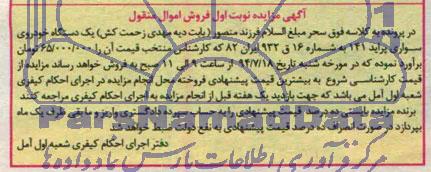 آگهی مزایده نوبت اول فروش اموال منقول
در پرونده به کلاسه فوق سحر مبلغ السلام فرزند منصور (بابت دیه مهدی زحمت کش) یک دستگاه خودروی
سواری پراید ۱۴۱ به شماره ۱۶ ق ۹۳۲ ایران ۸۲ که کارشناس منتخب قیمت آن را ۶۵/۰۰۰/۰۰۰ تومان
برآورد نموده که در مورخه شنبه تاریخ ۹۴/۷/۱۸ از ساعت ۹ الی ۱۱ صبح به فروش خواهد رساند مزایده از
قیمت کارشناسی شروع به بیشترین قیمت پیشنهادی فروخته محل انجام مزایده در اجرای احکام کیفری
شعبه اول آمل می باشد که جهت بازدید یک هفته قبل از انجام مزایده به اجرای احکام کیفری مراجعه کنند
برنده مزایده بایستی ده درصد قیمت پیشنهادی را به حساب سپرده دادگستری واریز و مابقی ظرف یک ماه
بپردازد در صورت انصراف ده درصد قیمت پیشنهادی به نفع دولت ضبط خواهد شد
دفتر اجرای احکام کیفری شعبه اول آمل
مرکز فرآوری اطلاعات پارس نماد داده ها